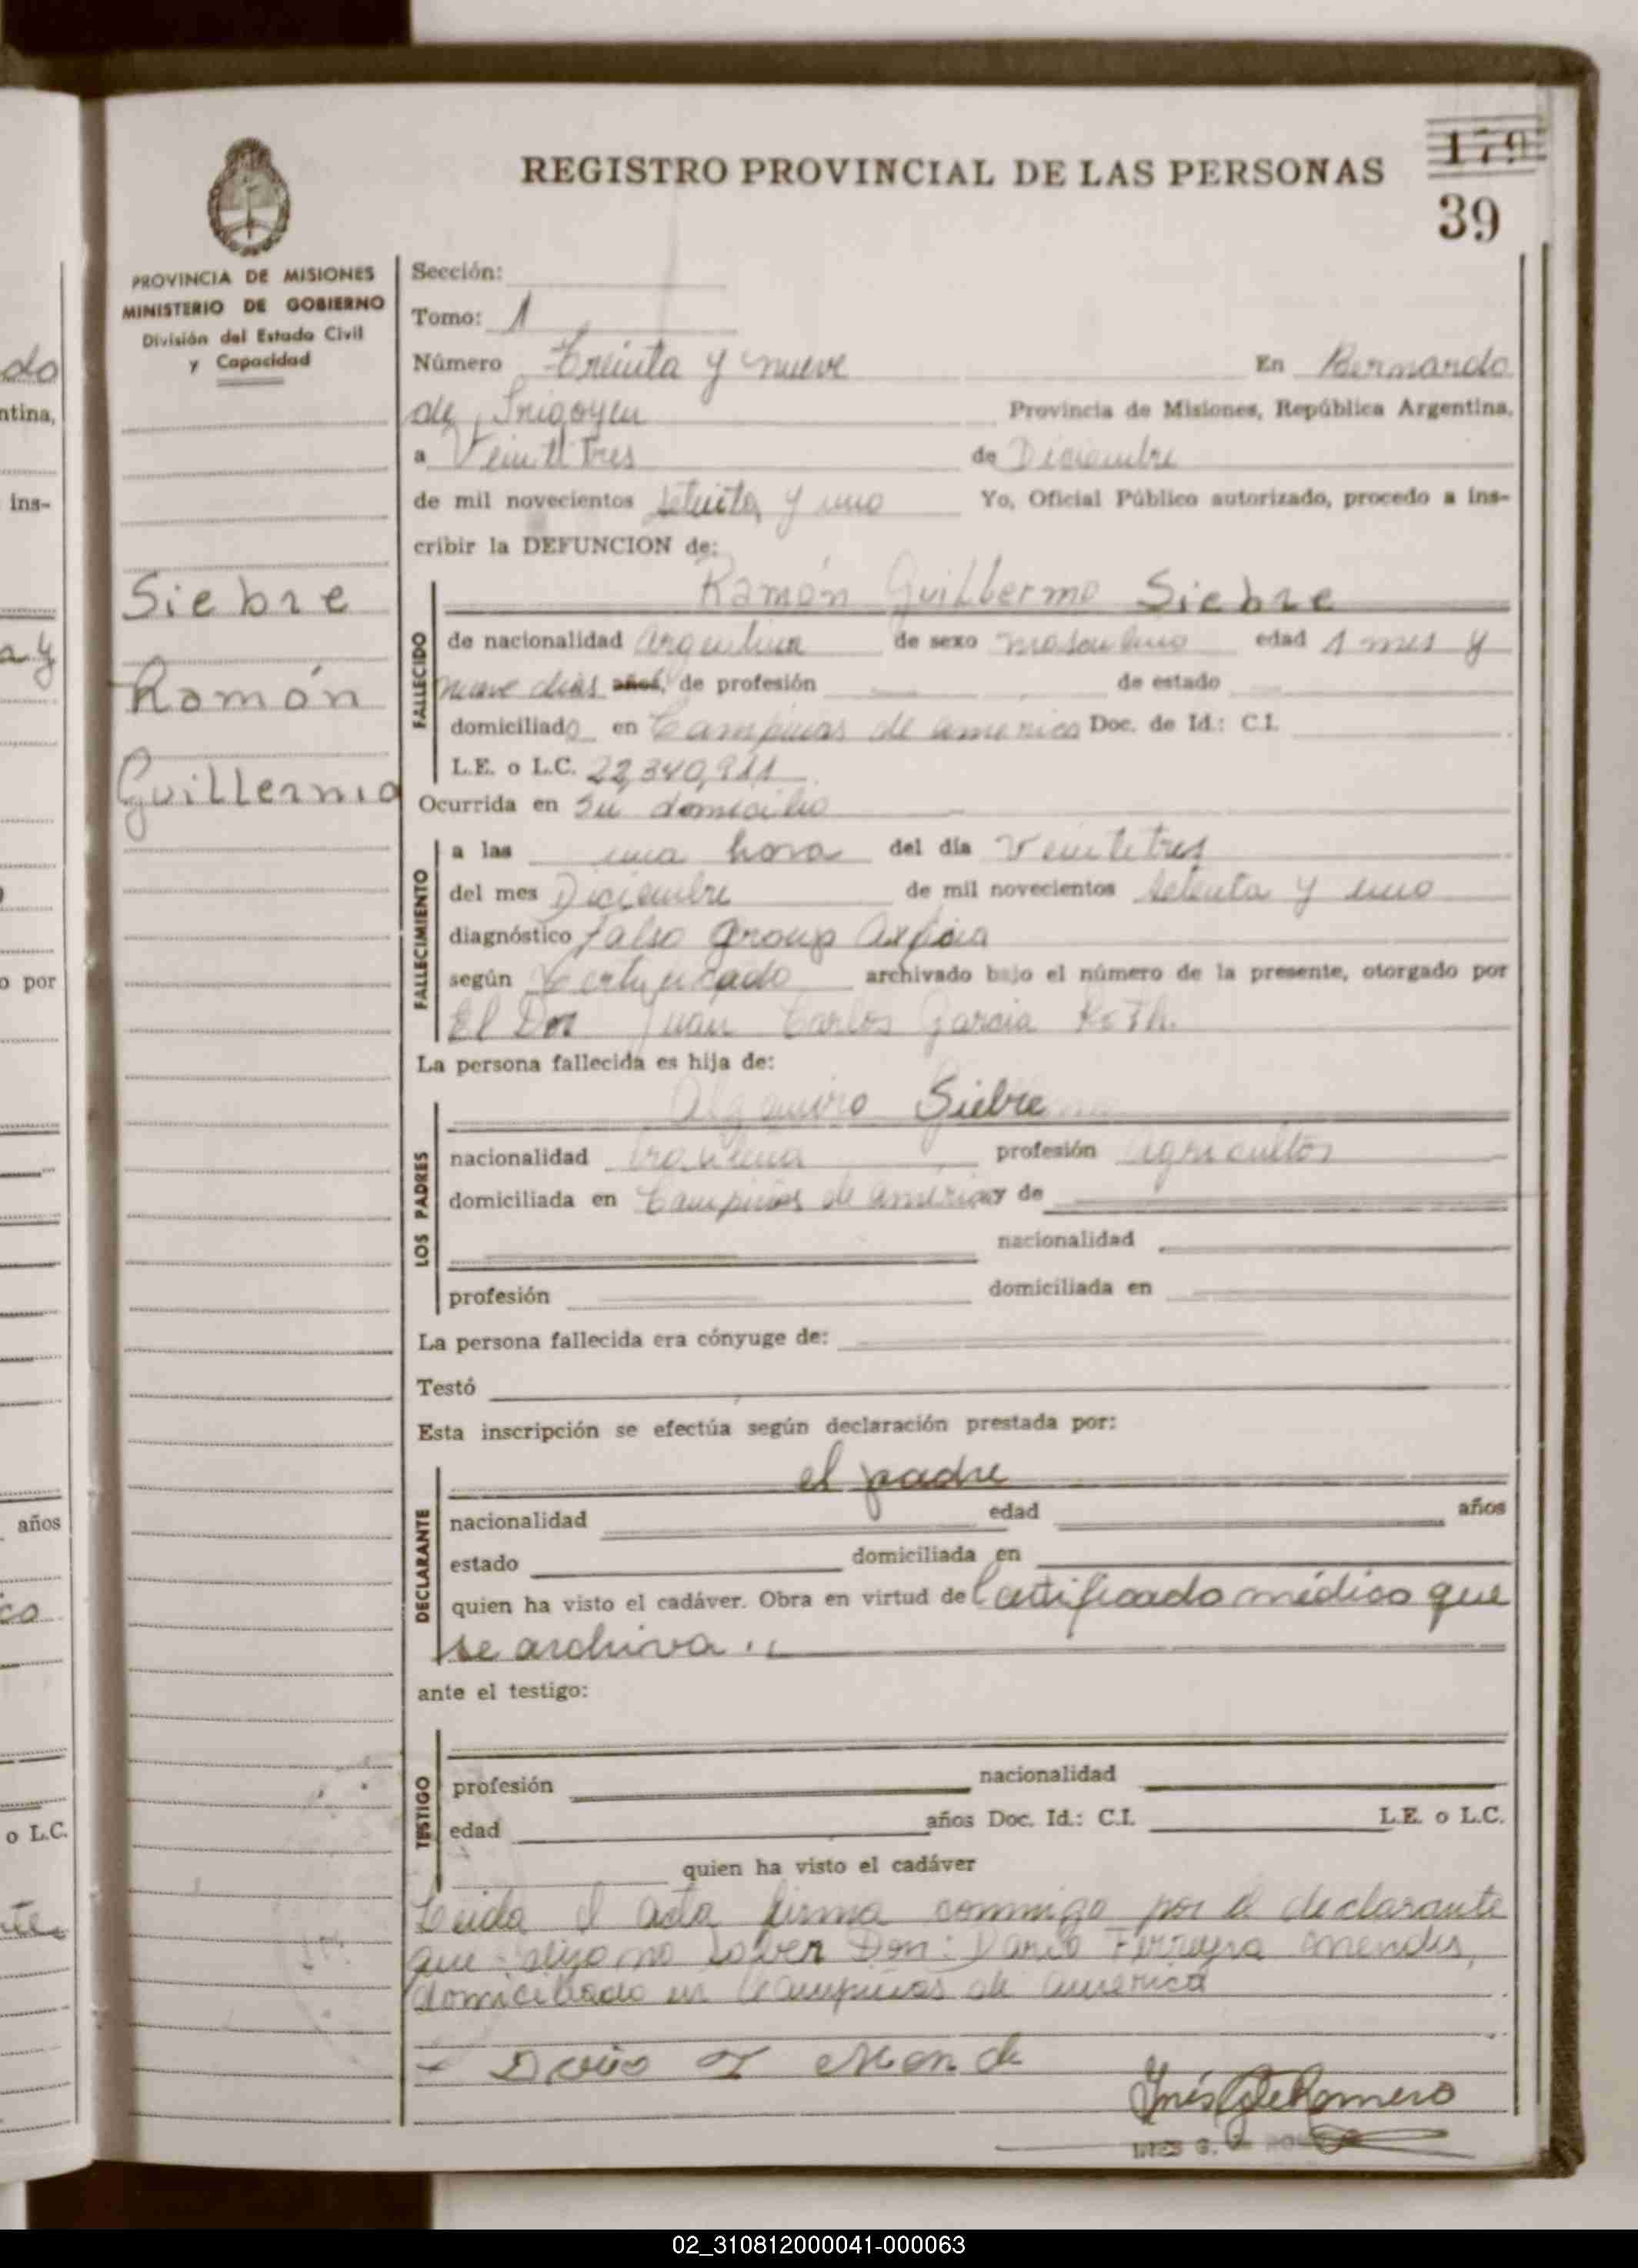 179
REGISTRO PROVINCIAL DE LAS PERSONAS
39
PROVINCIA DE MISIONES
MINISTERIO DE GOBIERNO
División del Estado Civil
y Capacidad
Siebre
Ramón
Guillermo
Sección:
Tomo: 1
Número Treinta y nueve En Bernardo
de Irigoyen Provincia de Misiones, República Argentina,
a Veintitres de Diciembre
de mil novecientos setenta y uno Yo, Oficial Público autorizado, procedo a ins-
cribir la DEFUNCION de:
Ramón Guillermo Siebre
FALLECIDO
de nacionalidad Argentina de sexo masculino edad 1 mes y
nueve dias años, de profesión de estado
domiciliado en Campinas de america Doc. de Id.: C.I.
L.E. o L.C. 22,340,911
Ocurrida en su domicilio
FALLECIMIENTO
a las una hora del día Veintitres
del mes Diciembre de mil novecientos setenta y uno
diagnóstico falso group
según Certificado archivado bajo el número de la presente, otorgado por
El Dor Juan Carlos Garcia Roth.
La persona fallecida es hija de:
Siebre
LOS PADRES
nacionalidad profesión agricultor
domiciliada en Campinas de america y de
nacionalidad
profesión domiciliada en
La persona fallecida era cónyuge de:
Testó
Esta inscripción se efectúa según declaración prestada por:
el padre
DECLARANTE
nacionalidad edad años
estado domiciliada en
quien ha visto el cadáver. Obra en virtud de Certificado médico que
se archiva
ante el testigo:
TESTIGO
profesión nacionalidad
edad años Doc. Id.: C.I. L.E. o L.C.
quien ha visto el cadáver
Leida el acta firma conmigo por el declarante
que no saber Don: Dario Ferreyra mendes,
domiciliado en Campinas de america
Inés G de Romero
do
ntina,
ins-
ay
o por
años
co
o L.C.
02_310812000041-000063